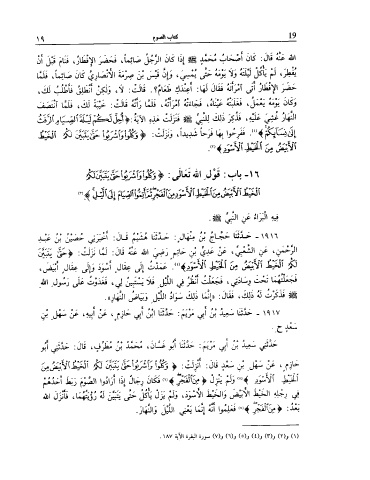 ١٩ كتاب الصوم 19
الله عَنْهُ قَالَ: كَانَ أَصْحَابُ مُحَمَّدٍ ﷺ إِذَا كَانَ الرَّجُلُ صَائِماً، فَحَضَرَ الإِفْطَارُ، فَنَامَ قَبْلَ أَنْ
يُفْطِرَ، لَمْ يَأْكُلْ لَيْلَتَهُ وَلَا يَوْمَهُ حَتَّى يُمْسِيَ، وَإِنَّ قَيْسَ بْنَ صِرْمَةَ الأَنْصَارِيَّ كَانَ صَائِماً، فَلَمَّا
حَضَرَ الإِفْطَارُ أَتَى امْرَأَتَهُ فَقَالَ لَهَا: أَعِنْدَكِ طَعَامٌ؟. قَالَتْ: لَا، وَلٰكِنْ أَنْطَلِقُ فَأَطْلُبُ لَكَ،
وَكَانَ يَوْمَهُ يَعْمَلُ، فَغَلَبَتْهُ عَيْنَاهُ، فَجَاءَتْهُ امْرَأَتُهُ، فَلَمَّا رَأَتْهُ قَالَتْ: خَيْبَةً لَكَ، فَلَمَّا انْتَصَفَ
النَّهَارُ غُشِيَ عَلَيْهِ، فَذُكِرَ ذٰلِكَ لِلنَّبِيِّ ﷺ فَنَزَلَتْ هٰذِهِ الآيَةُ: ﴿أُحِلَّ لَكُمْ لَيْلَةَ الصِّيَامِ الرَّفَثُ
إِلَى نِسَائِكُمْ﴾(١). فَفَرِحُوا بِهَا فَرَحاً شَدِيداً، وَنَزَلَتْ: ﴿وَكُلُوا وَاشْرَبُوا حَتَّى يَتَبَيَّنَ لَكُمُ الْخَيْطُ
الْأَبْيَضُ مِنَ الْخَيْطِ الْأَسْوَدِ﴾(٢).
١٦- باب: قَوْلِ الله تَعَالَى: ﴿وَكُلُوا وَاشْرَبُوا حَتَّى يَتَبَيَّنَ لَكُمُ
الْخَيْطُ الْأَبْيَضُ مِنَ الْخَيْطِ الْأَسْوَدِ مِنَ الْفَجْرِ ثُمَّ أَتِمُّوا الصِّيَامَ إِلَى اللَّيْلِ﴾(٣)
فِيهِ الْبَرَاءُ عَنِ النَّبِيِّ ﷺ.
١٩١٦- حَدَّثَنَا حَجَّاجُ بْنُ مِنْهَالٍ: حَدَّثَنَا هُشَيْمٌ قَالَ: أَخْبَرَنِي حُصَيْنُ بْنُ عَبْدِ
الرَّحْمٰنِ، عَنِ الشَّعْبِيِّ، عَنْ عَدِيِّ بْنِ حَاتِمٍ رَضِيَ الله عَنْهُ قَالَ: لَمَّا نَزَلَتْ: ﴿حَتَّى يَتَبَيَّنَ
لَكُمُ الْخَيْطُ الْأَبْيَضُ مِنَ الْخَيْطِ الْأَسْوَدِ﴾(٤). عَمَدْتُ إِلَى عِقَالٍ أَسْوَدَ وَإِلَى عِقَالٍ أَبْيَضَ،
فَجَعَلْتُهُمَا تَحْتَ وِسَادَتِي، فَجَعَلْتُ أَنْظُرُ فِي اللَّيْلِ فَلَا يَسْتَبِينُ لِي، فَغَدَوْتُ عَلَى رَسُولِ الله
ﷺ فَذَكَرْتُ لَهُ ذٰلِكَ، فَقَالَ: «إِنَّمَا ذٰلِكَ سَوَادُ اللَّيْلِ وَبَيَاضُ النَّهَارِ».
١٩١٧- حَدَّثَنَا سَعِيدُ بْنُ أَبِي مَرْيَمَ: حَدَّثَنَا ابْنُ أَبِي حَازِمٍ، عَنْ أَبِيهِ، عَنْ سَهْلِ بْنِ
سَعْدٍ ح.
حَدَّثَنِي سَعِيدُ بْنُ أَبِي مَرْيَمَ: حَدَّثَنَا أَبُو غَسَّانَ، مُحَمَّدُ بْنُ مُطَرِّفٍ، قَالَ: حَدَّثَنِي أَبُو
حَازِمٍ، عَنْ سَهْلِ بْنِ سَعْدٍ قَالَ: أُنْزِلَتْ: ﴿وَكُلُوا وَاشْرَبُوا حَتَّى يَتَبَيَّنَ لَكُمُ الْخَيْطُ الْأَبْيَضُ مِنَ
الْخَيْطِ الْأَسْوَدِ﴾(٥) وَلَمْ يَنْزِلْ ﴿مِنَ الْفَجْرِ﴾(٦) فَكَانَ رِجَالٌ إِذَا أَرَادُوا الصَّوْمَ رَبَطَ أَحَدُهُمْ
فِي رِجْلِهِ الْخَيْطَ الْأَبْيَضَ وَالْخَيْطَ الْأَسْوَدَ، وَلَمْ يَزَلْ يَأْكُلُ حَتَّى يَتَبَيَّنَ لَهُ رُؤْيَتُهُمَا، فَأَنْزَلَ الله
بَعْدُ: ﴿مِنَ الْفَجْرِ﴾(٧) فَعَلِمُوا أَنَّهُ إِنَّمَا يَعْنِي اللَّيْلَ وَالنَّهَارَ.
(١) و(٢) و(٣) و(٤) و(٥) و(٦) و(٧) سورة البقرة الآية ١٨٧.